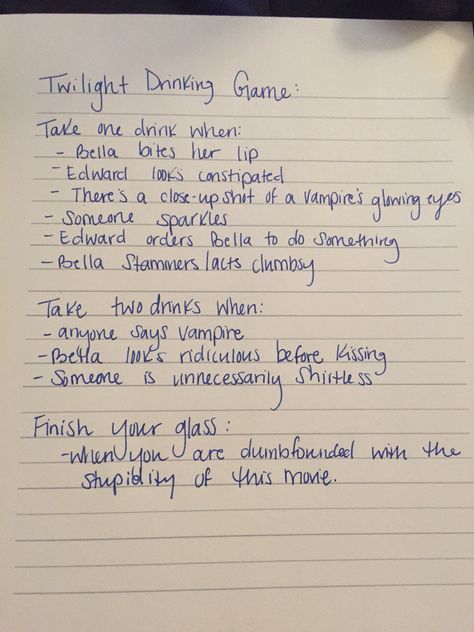 Twilight Drinking Game:
Take one drink when:
- Bella bites her lip
- Edward looks constipated
- There's a close-up shot of a vampire's glowing eyes
- Someone sparkles
- Edward orders Bella to do something
- Bella stammers/acts clumbsy
Take two drinks when:
- anyone says vampire
- Bella looks ridiculous before kissing
- Someone is unnecessarily shirtless
Finish your glass:
- when you are dumbfounded with the
stupidity of this movie.